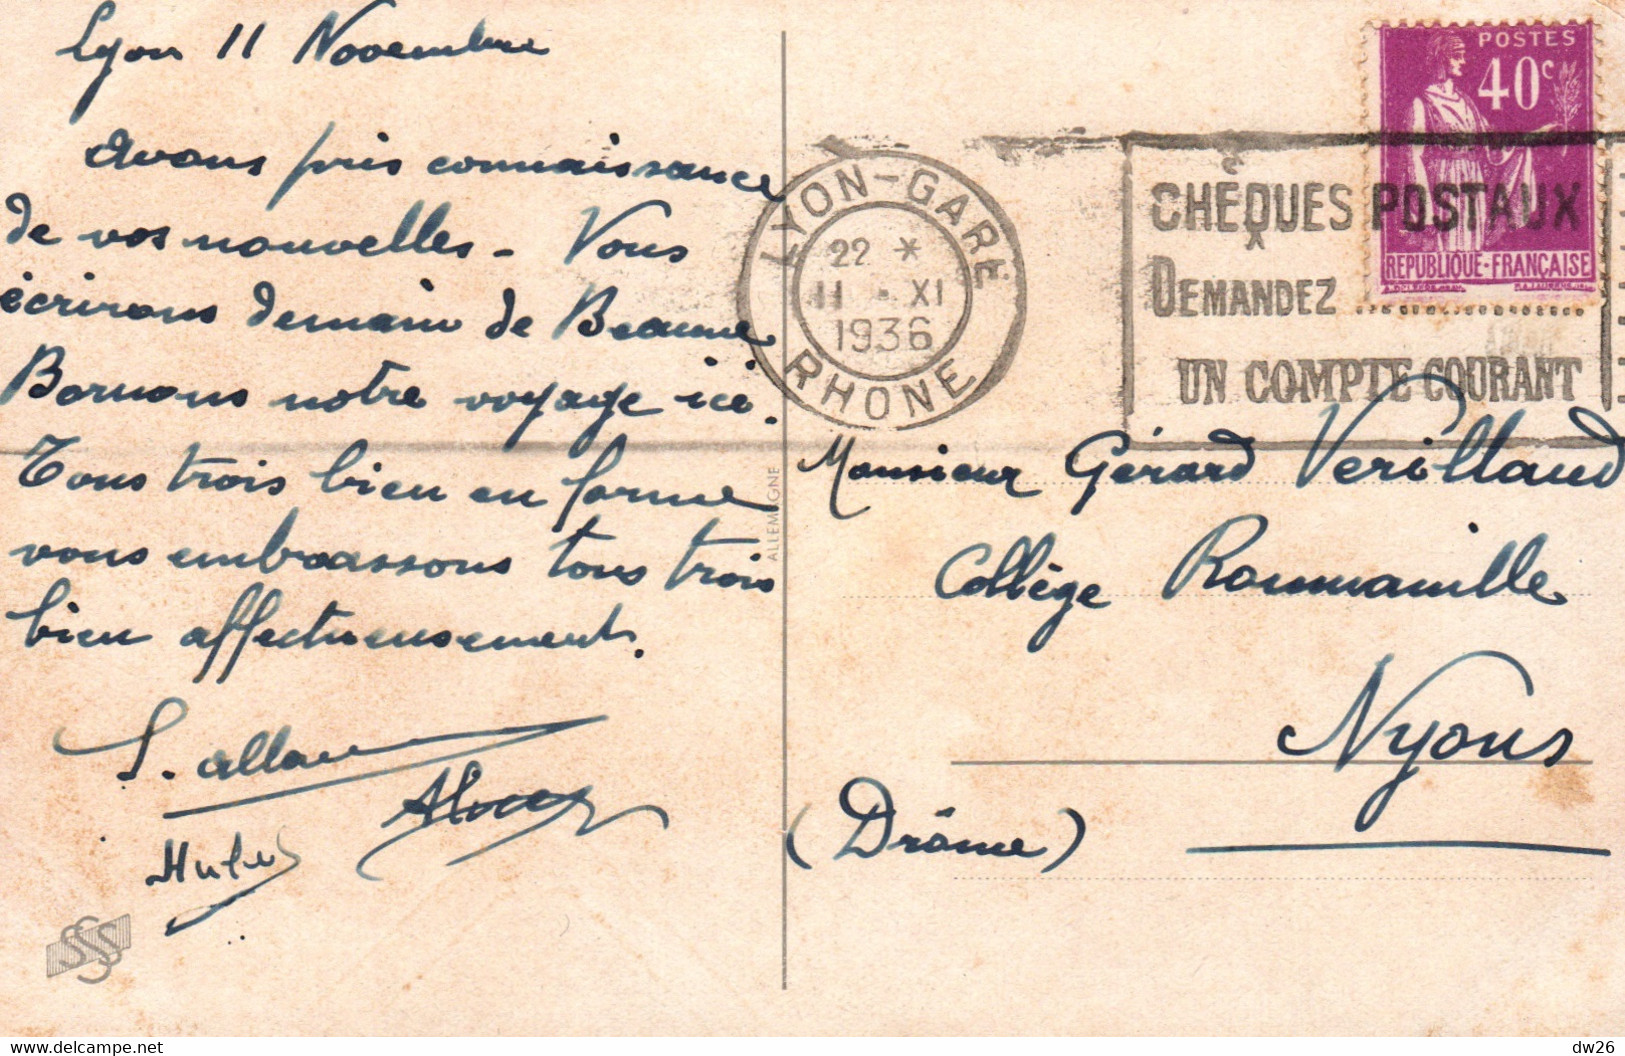 Lyon 11 Novembre
Avons pris connaissance
de vos nouvelles - Vous
écrirons demain de Beaune
Bornons notre voyage ici.
Tous trois bien en forme
vous embrassons tous trois
bien affectueusement.
ALLEMAGNE
SSS
POSTES
40c
REPUBLIQUE-FRANÇAISE
LYON-GARE
22 *
11 - XI
1936
RHONE
CHEQUES POSTAUX
DEMANDEZ
UN COMPTE COURANT
Monsieur Gérard Verillaud
Collège Roumanille
Nyons
(Drôme)
https://www.delcampe.net
dw26